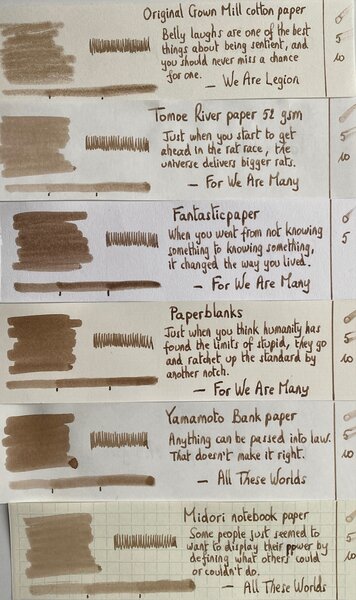 Original Crown Mill cotton paper
Belly laughs are one of the best
things about being sentient, and
you should never miss a chance
for one.
— We Are Legion
0
5
10
Tomoe River paper 52 gsm
Just when you start to get
ahead in the rat race, the
universe delivers bigger rats.
— For We Are Many
5
10
Fantasticpaper
When you went from not knowing
something to knowing something,
it changed the way you lived.
— For We Are Many
0
5
Paperblanks
Just when you think humanity has
found the limits of stupid, they go
and ratchet up the standard by
another notch.
— For We Are Many
0
5
10
Yamamoto Bank paper
Anything can be passed into law.
That doesn't make it right.
— All These Worlds
5
10
Midori notebook paper
Some people just seemed to
want to display their power by
defining what others could
or couldn't do.
— All These Worlds
0
5
10